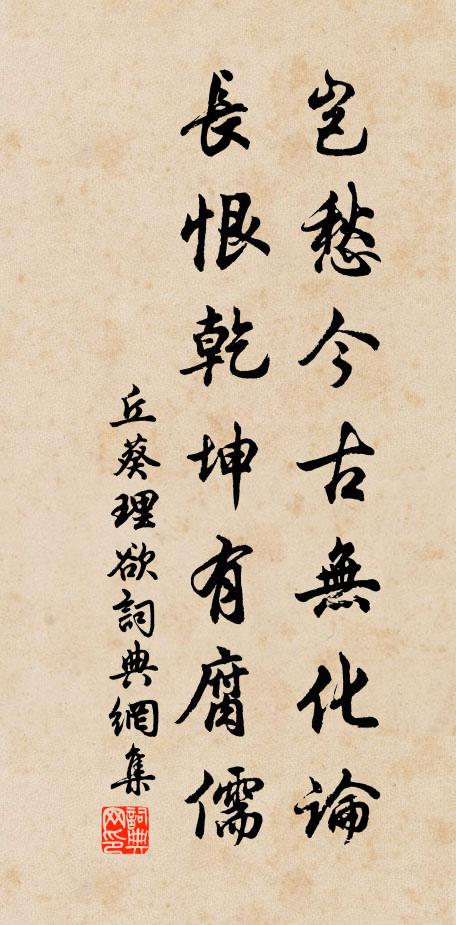 豈愁今古無化論
長恨乾坤有腐儒
丘葵理欲詞典網集
詞典
网印